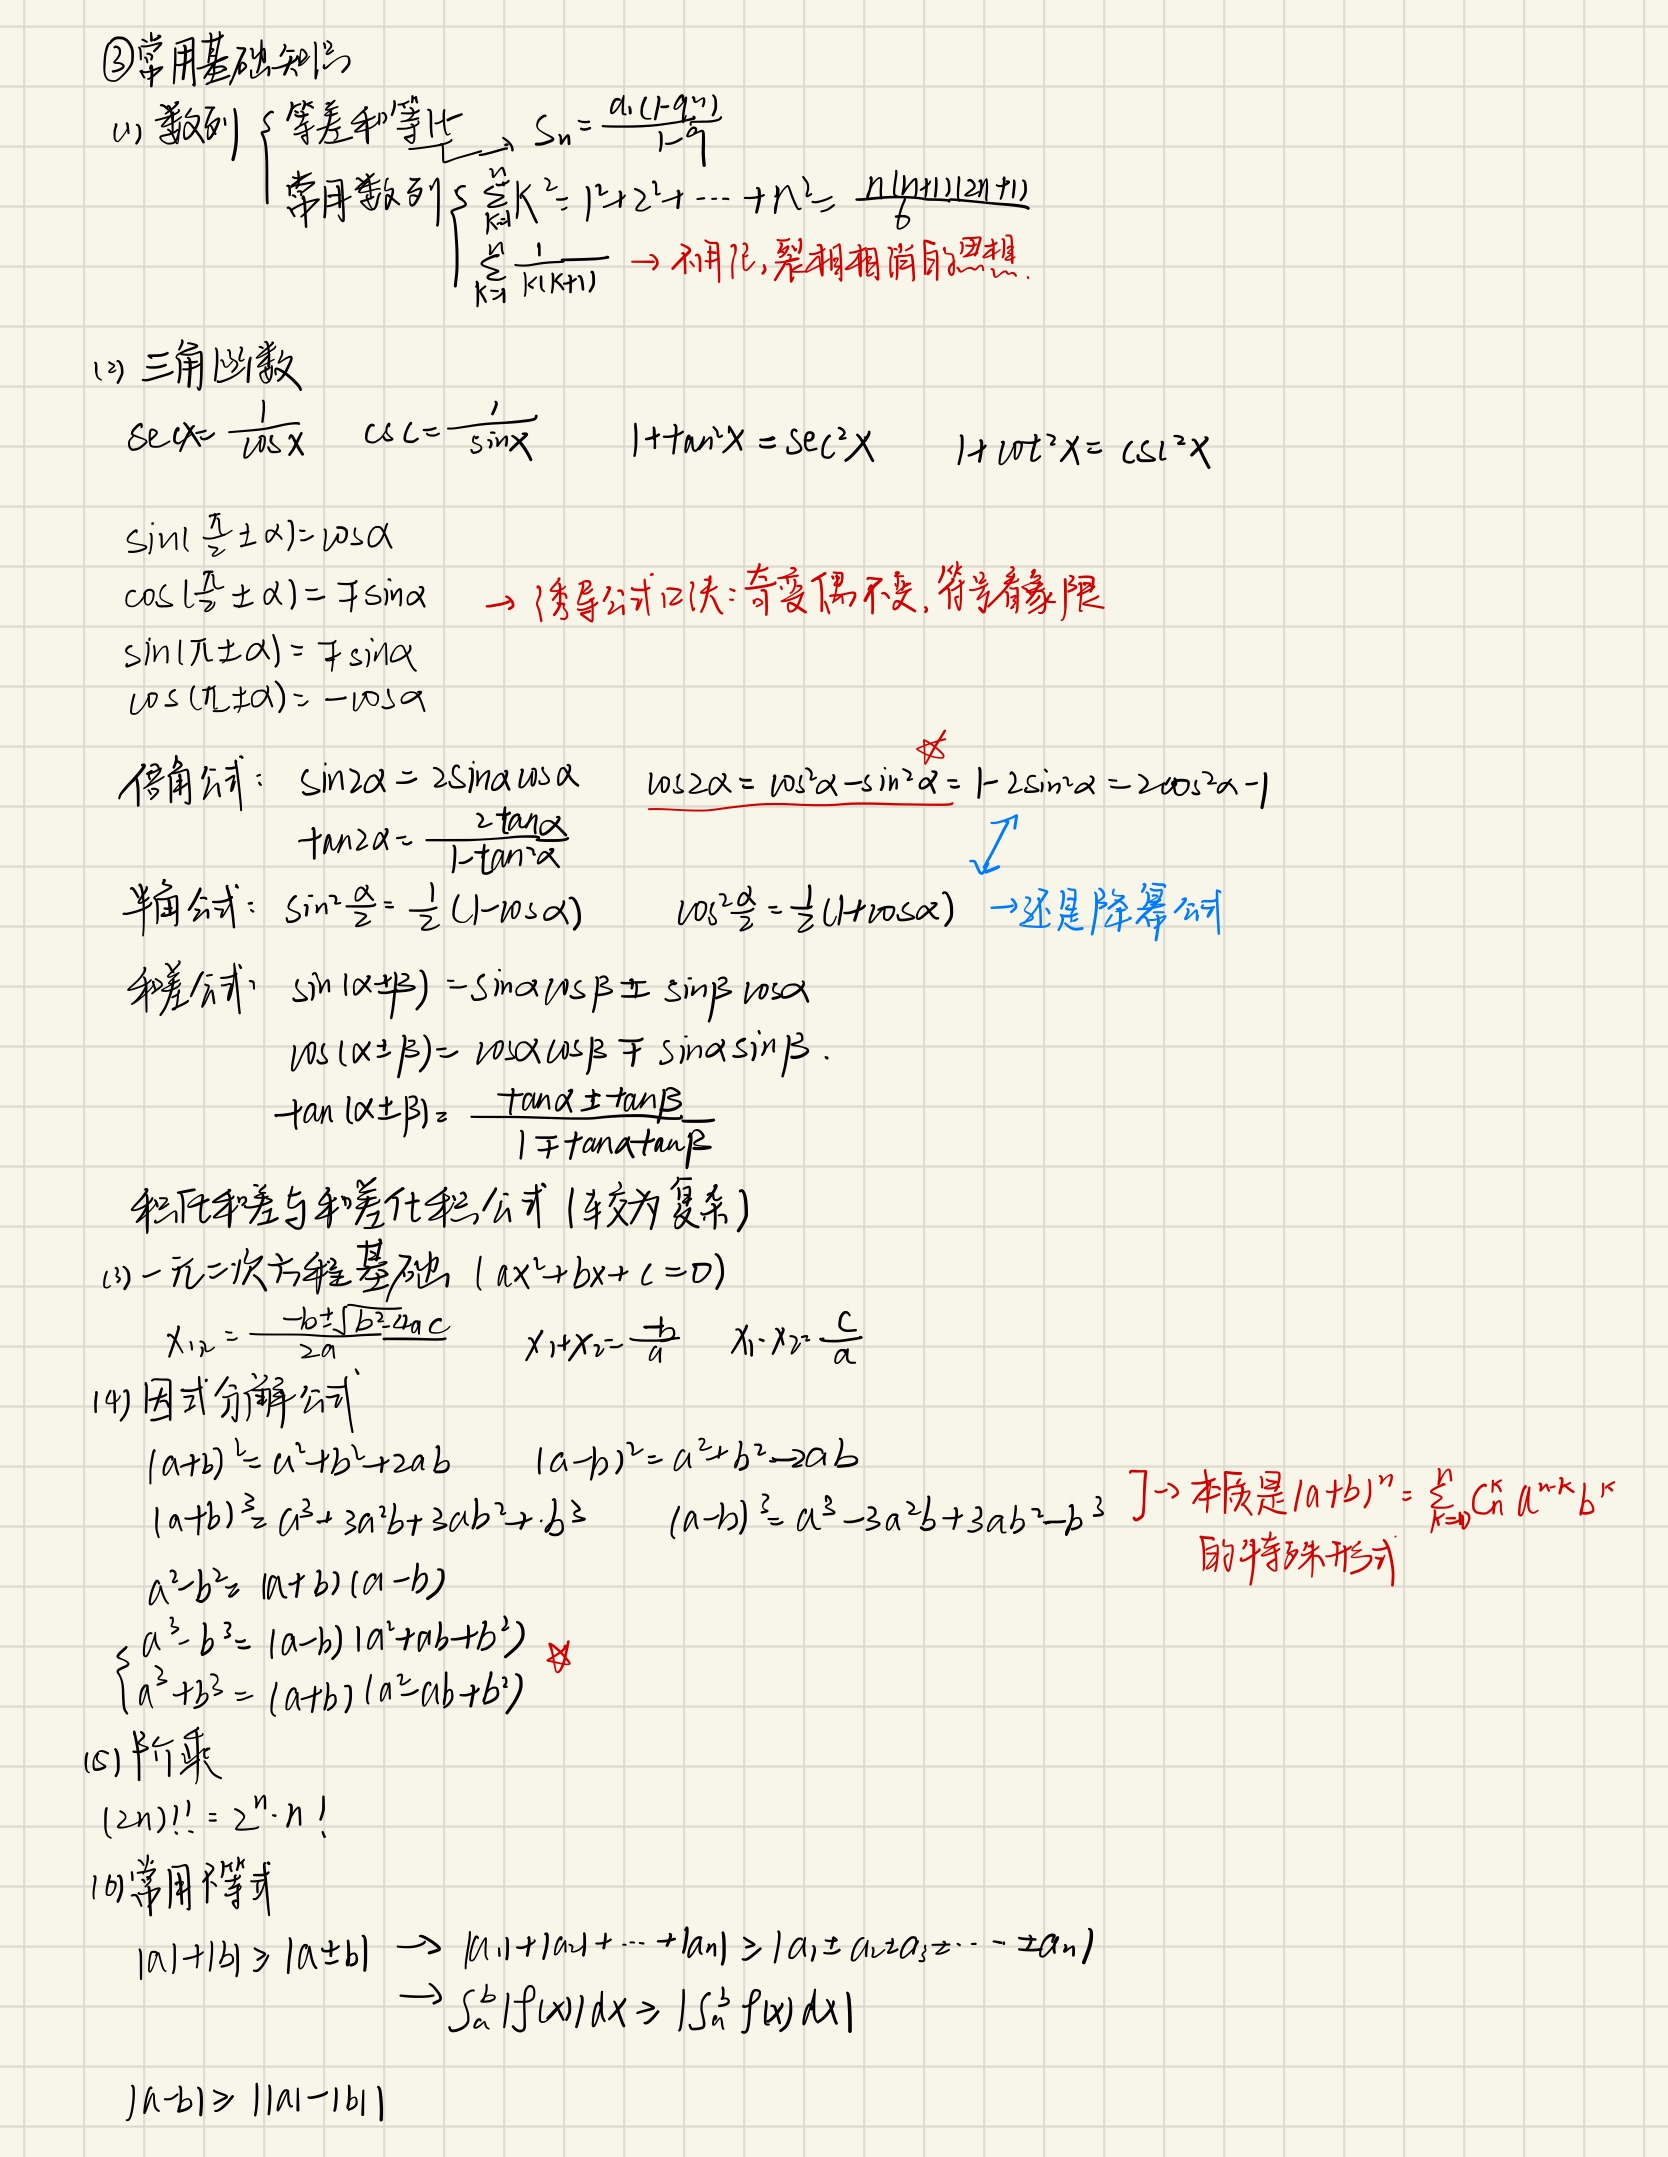 ③常用基础知识
(1) 数列 { 等差和等比 → Sn = a₁(1-qⁿ)/(1-q)
常用数列 { ∑_{k=1}^{n} k² = 1²+2²+⋯+n² = n(n+1)(2n+1)/6
∑_{k=1}^{n} 1/(k(k+1)) → 不用记,裂相相消的思想.
(2) 三角函数
secx = 1/cosx csc = 1/sinx 1+tan²x = sec²x 1+cot²x = csc²x
sin(π/2 ± α) = cosα
cos(π/2 ± α) = ∓sinα → 诱导公式口决:奇变偶不变,符号看象限
sin(π±α) = ∓sinα
cos(π±α) = -cosα
倍角公式: sin2α = 2sinαcosα cos2α = cos²α-sin²α = 1-2sin²α = 2cos²α-1 ☆
tan2α = 2tanα/(1-tan²α)
半角公式: sin²α/2 = 1/2(1-cosα) cos²α/2 = 1/2(1+cosα) →还是降幂公式
和差公式: sin(α±β) = sinαcosβ ± sinβcosα
cos(α±β) = cosαcosβ ∓ sinαsinβ.
tan(α±β) = (tanα±tanβ)/(1∓tanαtanβ)
积化和差与和差化积公式(较为复杂)
(3) 一元二次方程基础 (ax²+bx+c=0)
x₁,₂ = (-b±√(b²-4ac))/2a x₁+x₂ = -b/a x₁·x₂ = c/a
(4) 因式分解公式
(a+b)² = a²+b²+2ab (a-b)² = a²+b²-2ab
(a+b)³ = a³+3a²b+3ab²+b³ (a-b)³ = a³-3a²b+3ab²-b³ ]→ 本质是(a+b)ⁿ = ∑_{k=0}^{n} Cₙᵏ aⁿ⁻ᵏbᵏ
的特殊形式
a²-b² = (a+b)(a-b)
{ a³-b³ = (a-b)(a²+ab+b²) ☆
a³+b³ = (a+b)(a²-ab+b²)
(5) 阶乘
(2n)!! = 2ⁿ·n!
(6)常用不等式
|a|+|b| ≥ |a±b| → |a₁|+|a₂|+⋯+|aₙ| ≥ |a₁±a₂±a₃±⋯±aₙ|
→ ∫ₐᵇ|f(x)|dx ≥ |∫ₐᵇ f(x)dx|
|a-b| ≥ ||a|-|b||